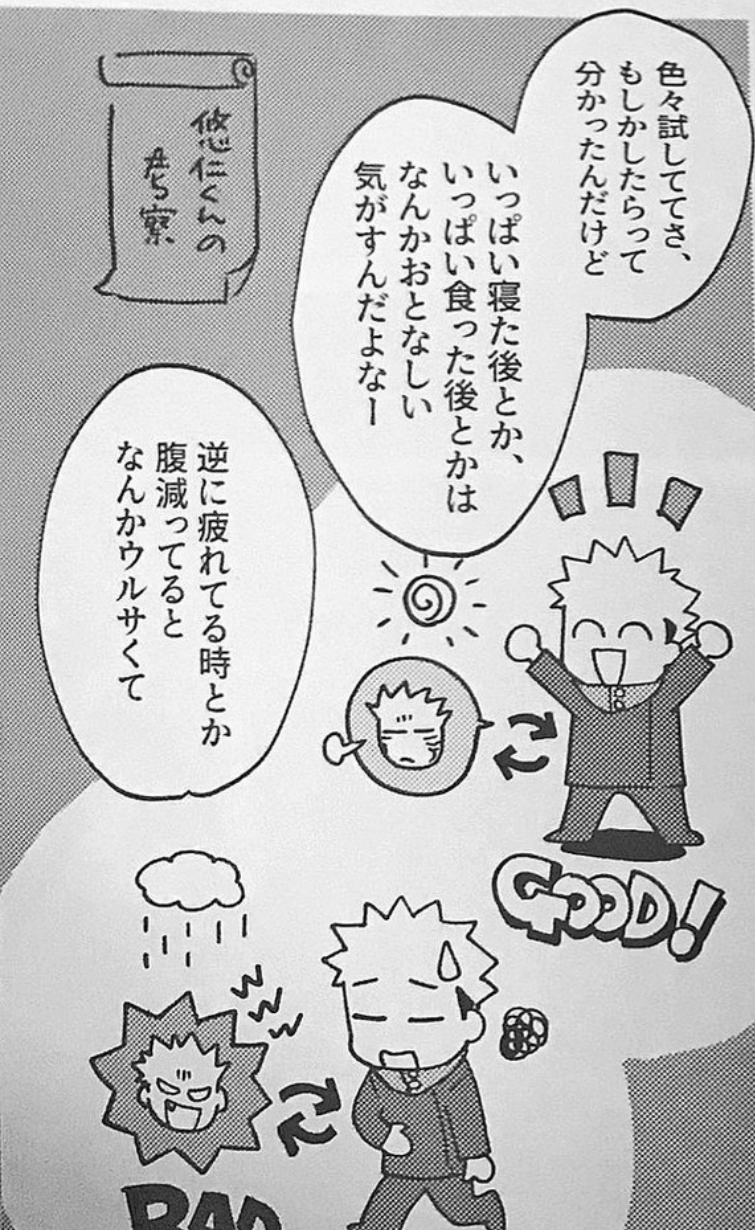 色々試しててさ、
もしかしたらって
分かったんだけど
いっぱい寝た後とか、
いっぱい食った後とかは
なんかおとなしい
気がすんだよなー
悠仁くんの
考察
GOOD!
逆に疲れてる時とか
腹減ってると
なんかウルサくて
BAD